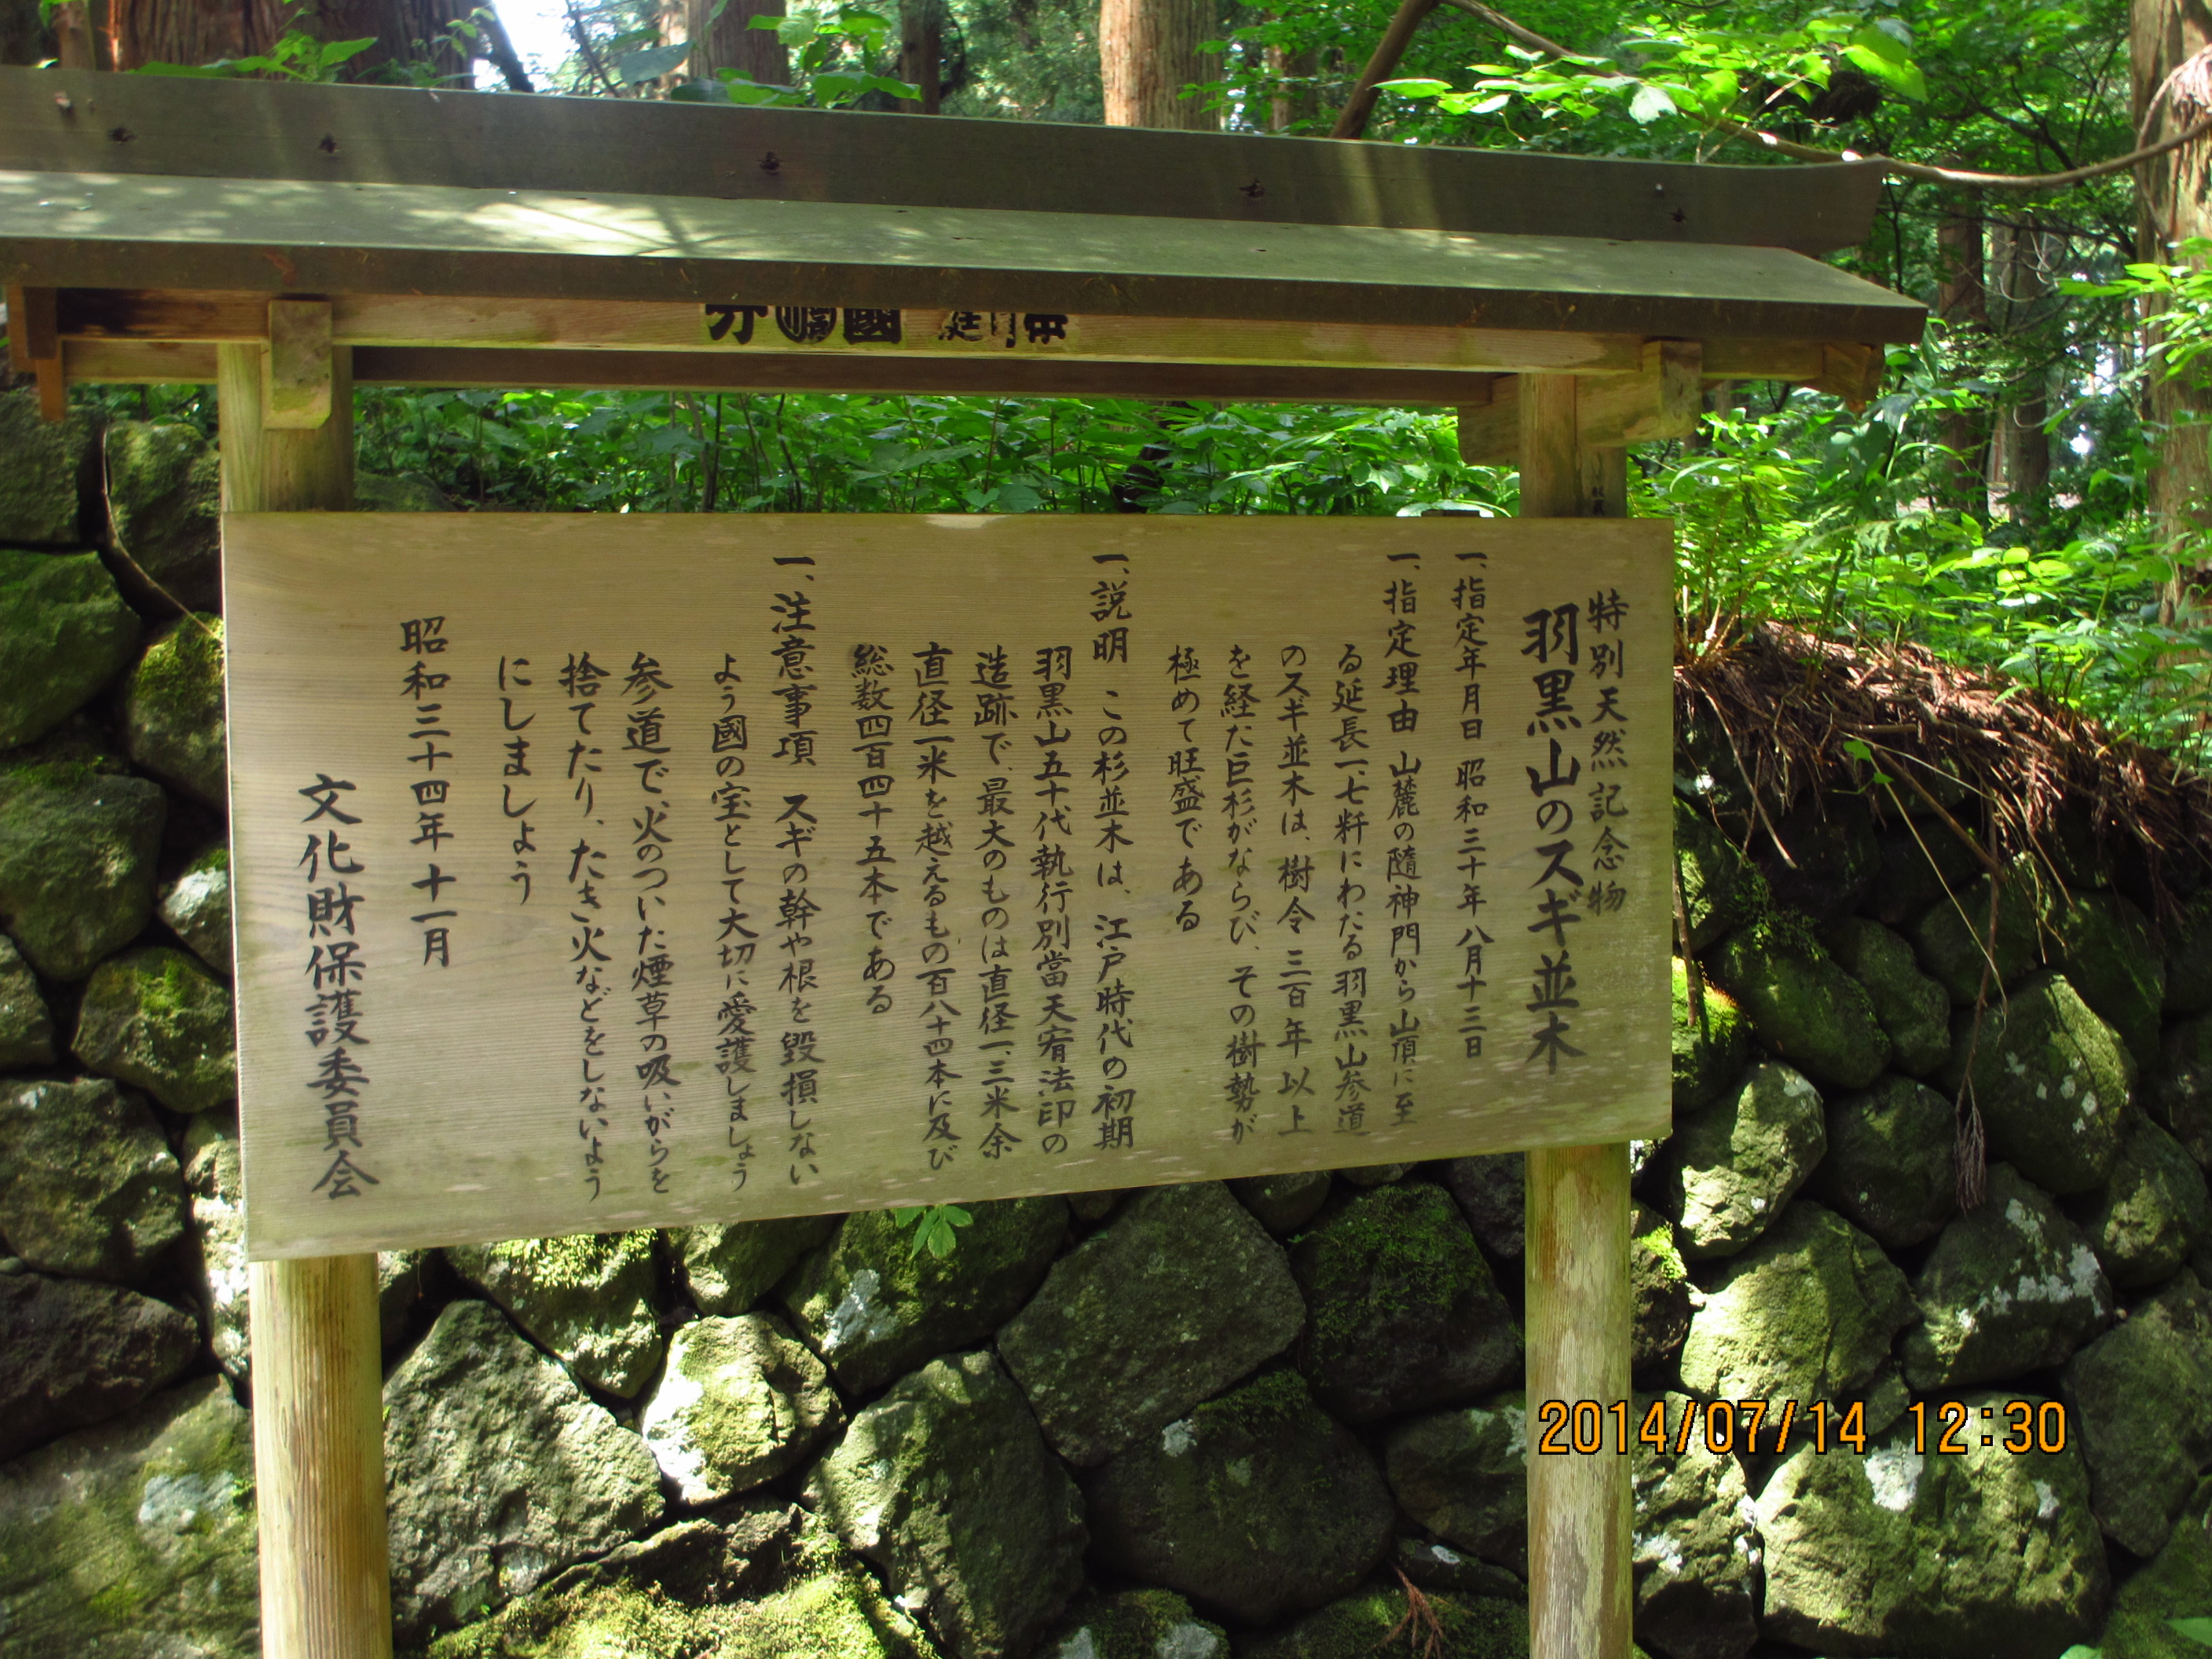 特別天然記念物
羽黒山のスギ並木
一、指定年月日 昭和三十年八月十三日
一、指定理由 山麓の隨神門から山頂に至
る延長一、七粁にわたる羽黒山参道
のスギ並木は、樹令三百年以上
を経た巨杉がならび、その樹勢が
極めて旺盛である
一、説明 この杉並木は、江戸時代の初期
羽黒山五十代執行別當天宥法印の
造跡で、最大のものは直径一、三米余
直径一米を越えるもの百八十四本に及び
総数四百四十五本である
一、注意事項 スギの幹や根を毀損しない
よう國の宝として大切に愛護しましょう
参道で、火のついた煙草の吸いがらを
捨てたり、たき火などをしないよう
にしましょう
昭和三十四年十一月
文化財保護委員会
2014/07/14 12:30